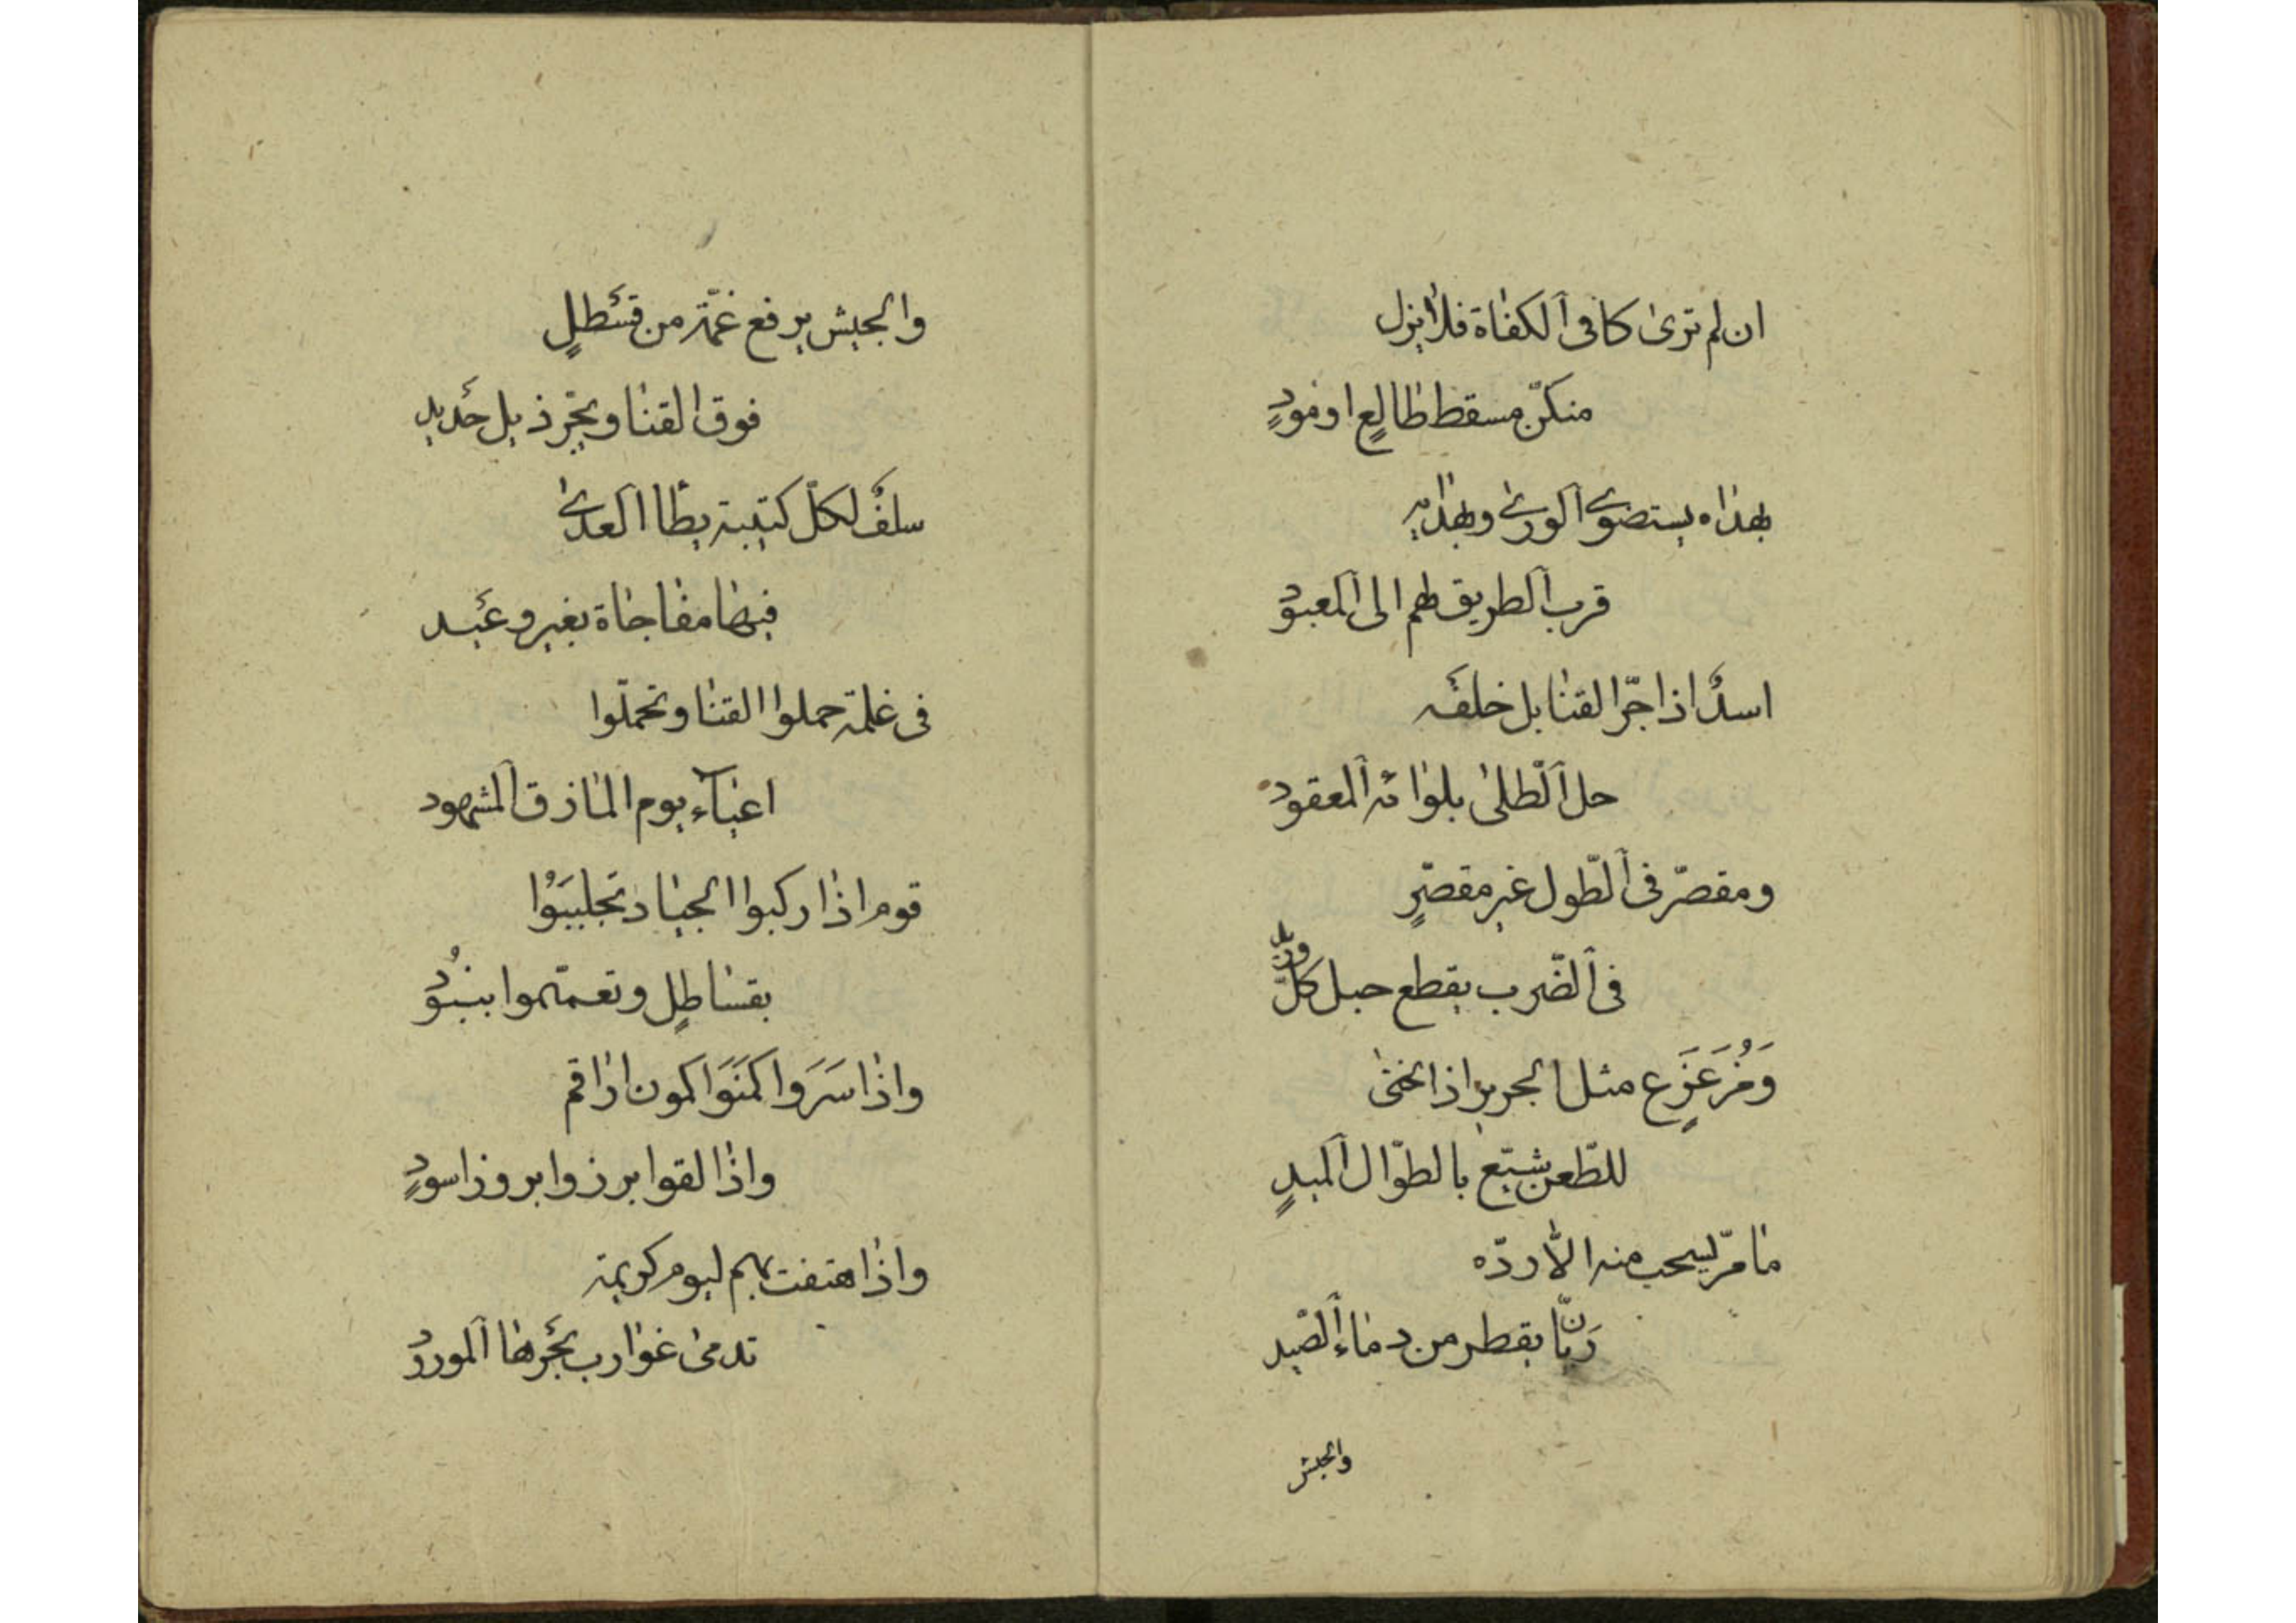 ان لم ترىٰ كافى ٱلكفاة فلا يزل
منكّس مسقط طالعٍ او مودٍ
بهداه يستضوئ ٱلورىٰ وبهدٰيه
قرب ٱلطريق لهم الى ٱلمعبود
اسدٌ اذا جرّ القنابل خلفَه
حل ٱلطّلىٰ بلوائه ٱلمعقود
ومقصّر فى ٱلطّول غير مقصّرٍ
فى ٱلضّرب يقطع حبل كلّ وريد
وَمُزَعزَعٍ مثل الجرير اذا انحنىٰ
للطّعن شيّع بالطوّال ٱلميدٍ
ما مرّ يسحب منه الّا ردّه
رَيّاً يقطر من دماء ٱلصّيد
والجيش
والجيش يرفع غمّة من قسْطلٍ
فوق القنا ويجرّ ذيل حَديد
سلفٌ لكلّ كتيبة يطأ ٱلعدىٰ
فيها مفاجاة بغير وعَيد
فى غلمة حملوا القنا وتحمّلوا
اعبآء يوم المازق ٱلمشهود
قوم اذا ركبوا الجياد تجلببَوُا
بقساطلٍ وتعمّموا ببنُود
واذا سَرَوا كمَنَوَا كمون اراقم
واذا لقوا برزوا بروز اسودٍ
واذا هتفت بهم ليوم كريهة
تدمىٰ غوارب بحَرها ٱلمورود